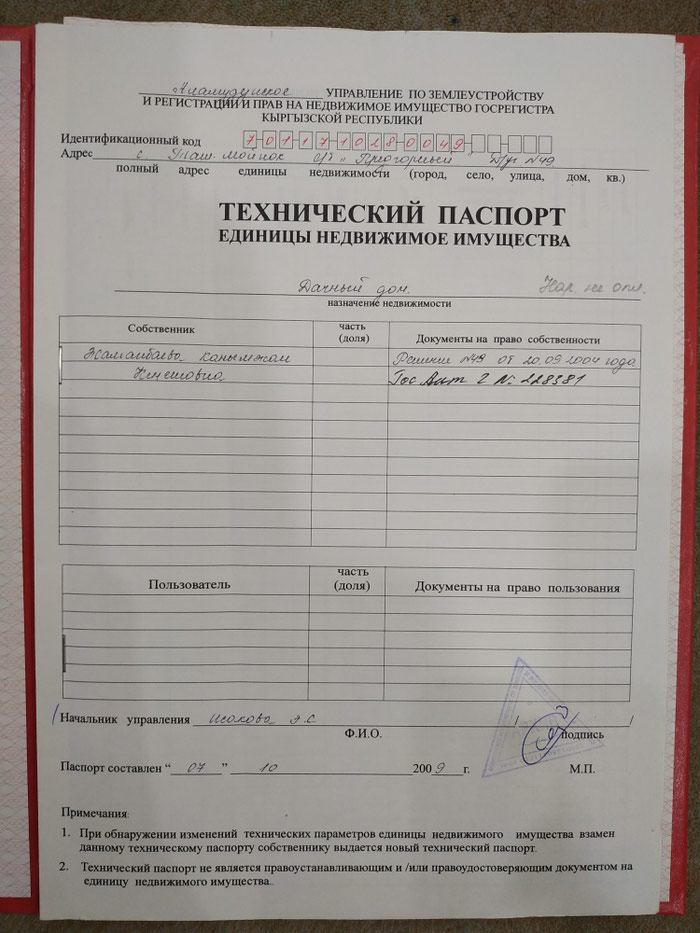 Аламудунское УПРАВЛЕНИЕ ПО ЗЕМЛЕУСТРОЙСТВУ
И РЕГИСТРАЦИИ И ПРАВ НА НЕДВИЖИМОЕ ИМУЩЕСТВО ГОСРЕГИСТРА
КЫРГЫЗСКОЙ РЕСПУБЛИКИ
Идентификационный код 7 0 1 1 7 1 0 2 8 0 0 4 9
Адрес с Таш-Мойнок "Предгорный" №49
полный адрес единицы недвижимости (город, село, улица, дом, кв.)
ТЕХНИЧЕСКИЙ ПАСПОРТ
ЕДИНИЦЫ НЕДВИЖИМОЕ ИМУЩЕСТВА
Дачный дом. Нар. не опл.
назначение недвижимости
Собственник часть (доля) Документы на право собственности
Решение №49 от 20.09.2004 года
Гос Акт Г № 228381
Пользователь часть (доля) Документы на право пользования
Начальник управления Исакова Э.С. / /
Ф.И.О. подпись
Паспорт составлен “ 07 ” 10 2009 г. М.П.
Примечания:
1. При обнаружении изменений технических параметров единицы недвижимого имущества взамен
данному техническому паспорту собственнику выдается новый технический паспорт.
2. Технический паспорт не является правоустанавливающим и /или правоудостоверяющим документом на
единицу недвижимого имущества..